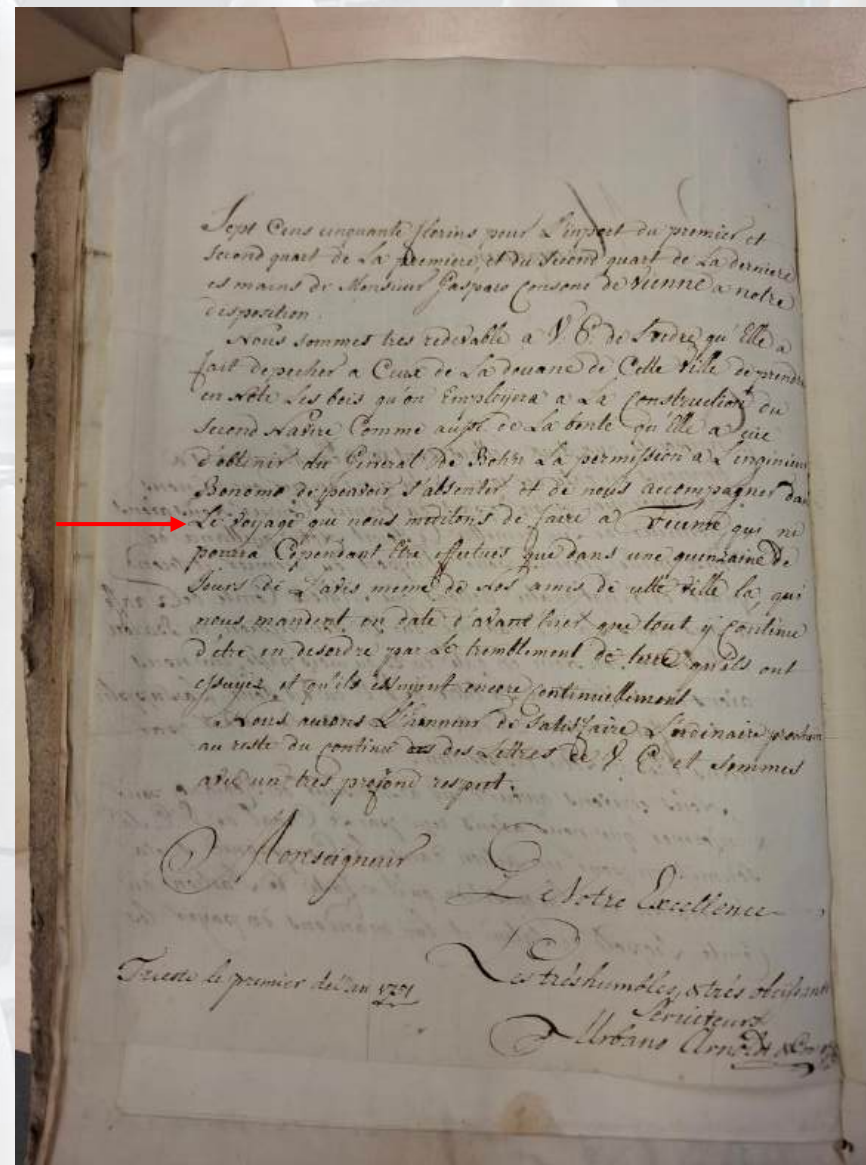 Sept Cens cinquante florins pour L'import du premier et
second quart de La premiere, et du second quart de La derniere
es mains de Monsieur Gasparo Consoni de Vienne a notre
disposition.
Nous sommes tres redevable a V. E. de L'ordre qu'Elle a
fait depecher a Ceux de La douane de Cette Ville de prendre
en Note Les bois qu'on Employera a La Construction du
second Navire Comme aussi de La bonté qu'Elle a eüe
d'obtenir du General de Bohn La permission a L'ingenieur
Bonomo de pouvoir s'absenter et de nous accompagner dans
Le voyage qui nous meditons de faire a Fiume qui ne
pourra Cependant Etre effectues que dans une quinzaine de
Jours de L'avis meme de Nos amis de cette Ville la, qui
nous mandent en date d'avant hier que tout y Continue
d'étre en desordre par Le tremblement de terre qu'ils ont
essuyez et qu'ils essuyent encore Continuellement
Nous aurons L'honneur de satisfaire L'ordinaire prochain
au reste du contenu des Lettres de V. E. et sommes
avec un tres profond respect.
Monseigneur
De Votre Excellence
Trieste le premier de l'an 1751
Les trés humbles, & trés obeissants
Serviteurs
Urbano Arnoldt & Comp